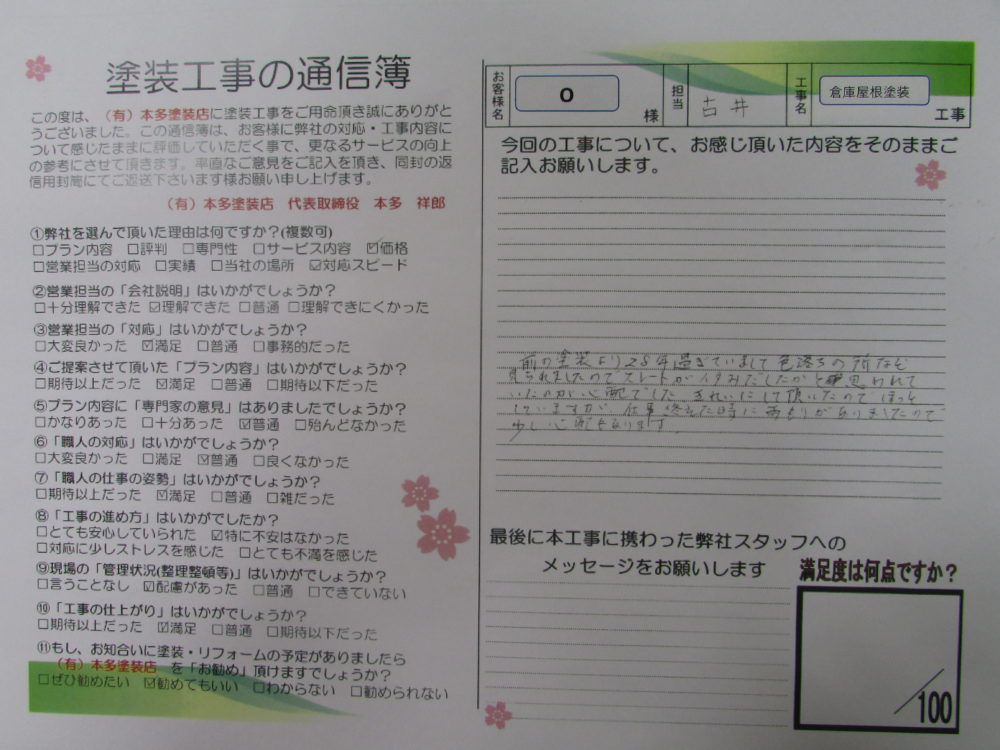 塗装工事の通信簿
この度は、(有)本多塗装店に塗装工事をご用命頂き誠にありがと
うございました。この通信簿は、お客様に弊社の対応・工事内容に
ついて感じたままに評価していただく事で、更なるサービスの向上
の参考にさせて頂きます。率直なご意見をご記入を頂き、同封の返
信用封筒にてご返送下さいます様お願い申し上げます。
(有)本多塗装店 代表取締役 本多 祥郎
①弊社を選んで頂いた理由は何ですか?(複数可)
□プラン内容 □評判 □専門性 □サービス内容 ☑価格
□営業担当の対応 □実績 □当社の場所 ☑対応スピード
②営業担当の「会社説明」はいかがでしょうか?
□十分理解できた ☑理解できた □普通 □理解できにくかった
③営業担当の「対応」はいかがでしょうか?
□大変良かった ☑満足 □普通 □事務的だった
④ご提案させて頂いた「プラン内容」はいかがでしょうか?
□期待以上だった ☑満足 □普通 □期待以下だった
⑤プラン内容に「専門家の意見」はありましたでしょうか?
□かなりあった □十分あった ☑普通 □殆んどなかった
⑥「職人の対応」はいかがでしょうか?
□大変良かった □満足 ☑普通 □良くなかった
⑦「職人の仕事の姿勢」はいかがでしょうか?
□期待以上だった ☑満足 □普通 □雑だった
⑧「工事の進め方」はいかがでしたか?
□とても安心していられた ☑特に不安はなかった
□対応に少しストレスを感じた □とても不満を感じた
⑨現場の「管理状況(整理整頓等)」はいかがでしょうか?
□言うことなし ☑配慮があった □普通 □できていない
⑩「工事の仕上がり」はいかがでしょうか?
□期待以上だった ☑満足 □普通 □期待以下だった
⑪もし、お知合いに塗装・リフォームの予定がありましたら
(有)本多塗装店 を「お勧め」頂けますでしょうか?
□ぜひ勧めたい ☑勧めてもいい □わからない □勧められない
お客様名 O 様 担当 古井 工事名 倉庫屋根塗装 工事
今回の工事について、お感じ頂いた内容をそのままご
記入お願いします。
前の塗装より28年過ぎていまして色落ちの所なども
見られましたのでスレートがイタみだしたかと思われて
いたのが心配でした きれいにして頂いたのでほっと
していますが 仕事終えた時に雨もりがありましたので
少し心配もあります
最後に本工事に携わった弊社スタッフへの
メッセージをお願いします
満足度は何点ですか?
/100